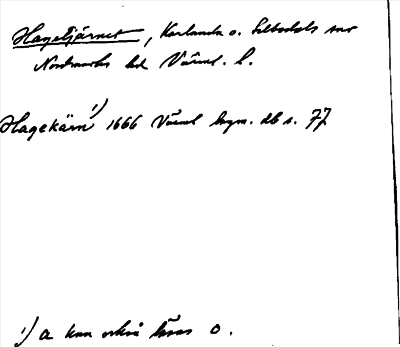 Hagetjärnet, Karlanda o. Silbodals snr
Nordmarks hd Värml. l.
Hagekärn 1) 1666 Värml hgm. db s. 77
1) a kan också läsas o.